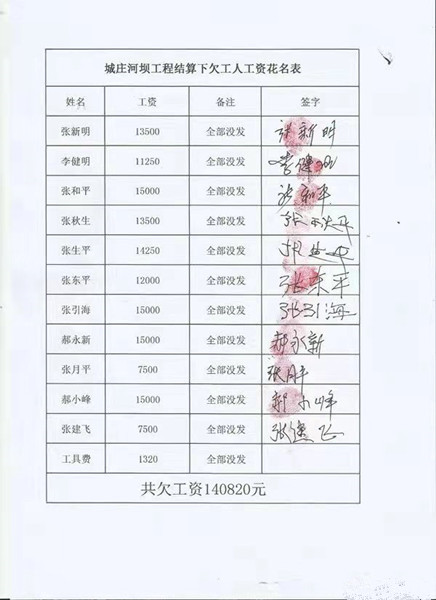 城庄河坝工程结算下欠工人工资花名表
姓名 工资 备注 签字
张新明 13500 全部没发 张新明
李健明 11250 全部没发 李健明
张和平 15000 全部没发 张和平
张秋生 13500 全部没发
张生平 14250 全部没发 张生平
张东平 12000 全部没发 张东平
张引海 15000 全部没发 张引海
郝永新 15000 全部没发 郝永新
张月平 7500 全部没发 张月平
郝小峰 15000 全部没发 郝小峰
张建飞 7500 全部没发 张建飞
工具费 1320 全部没发
共欠工资140820元